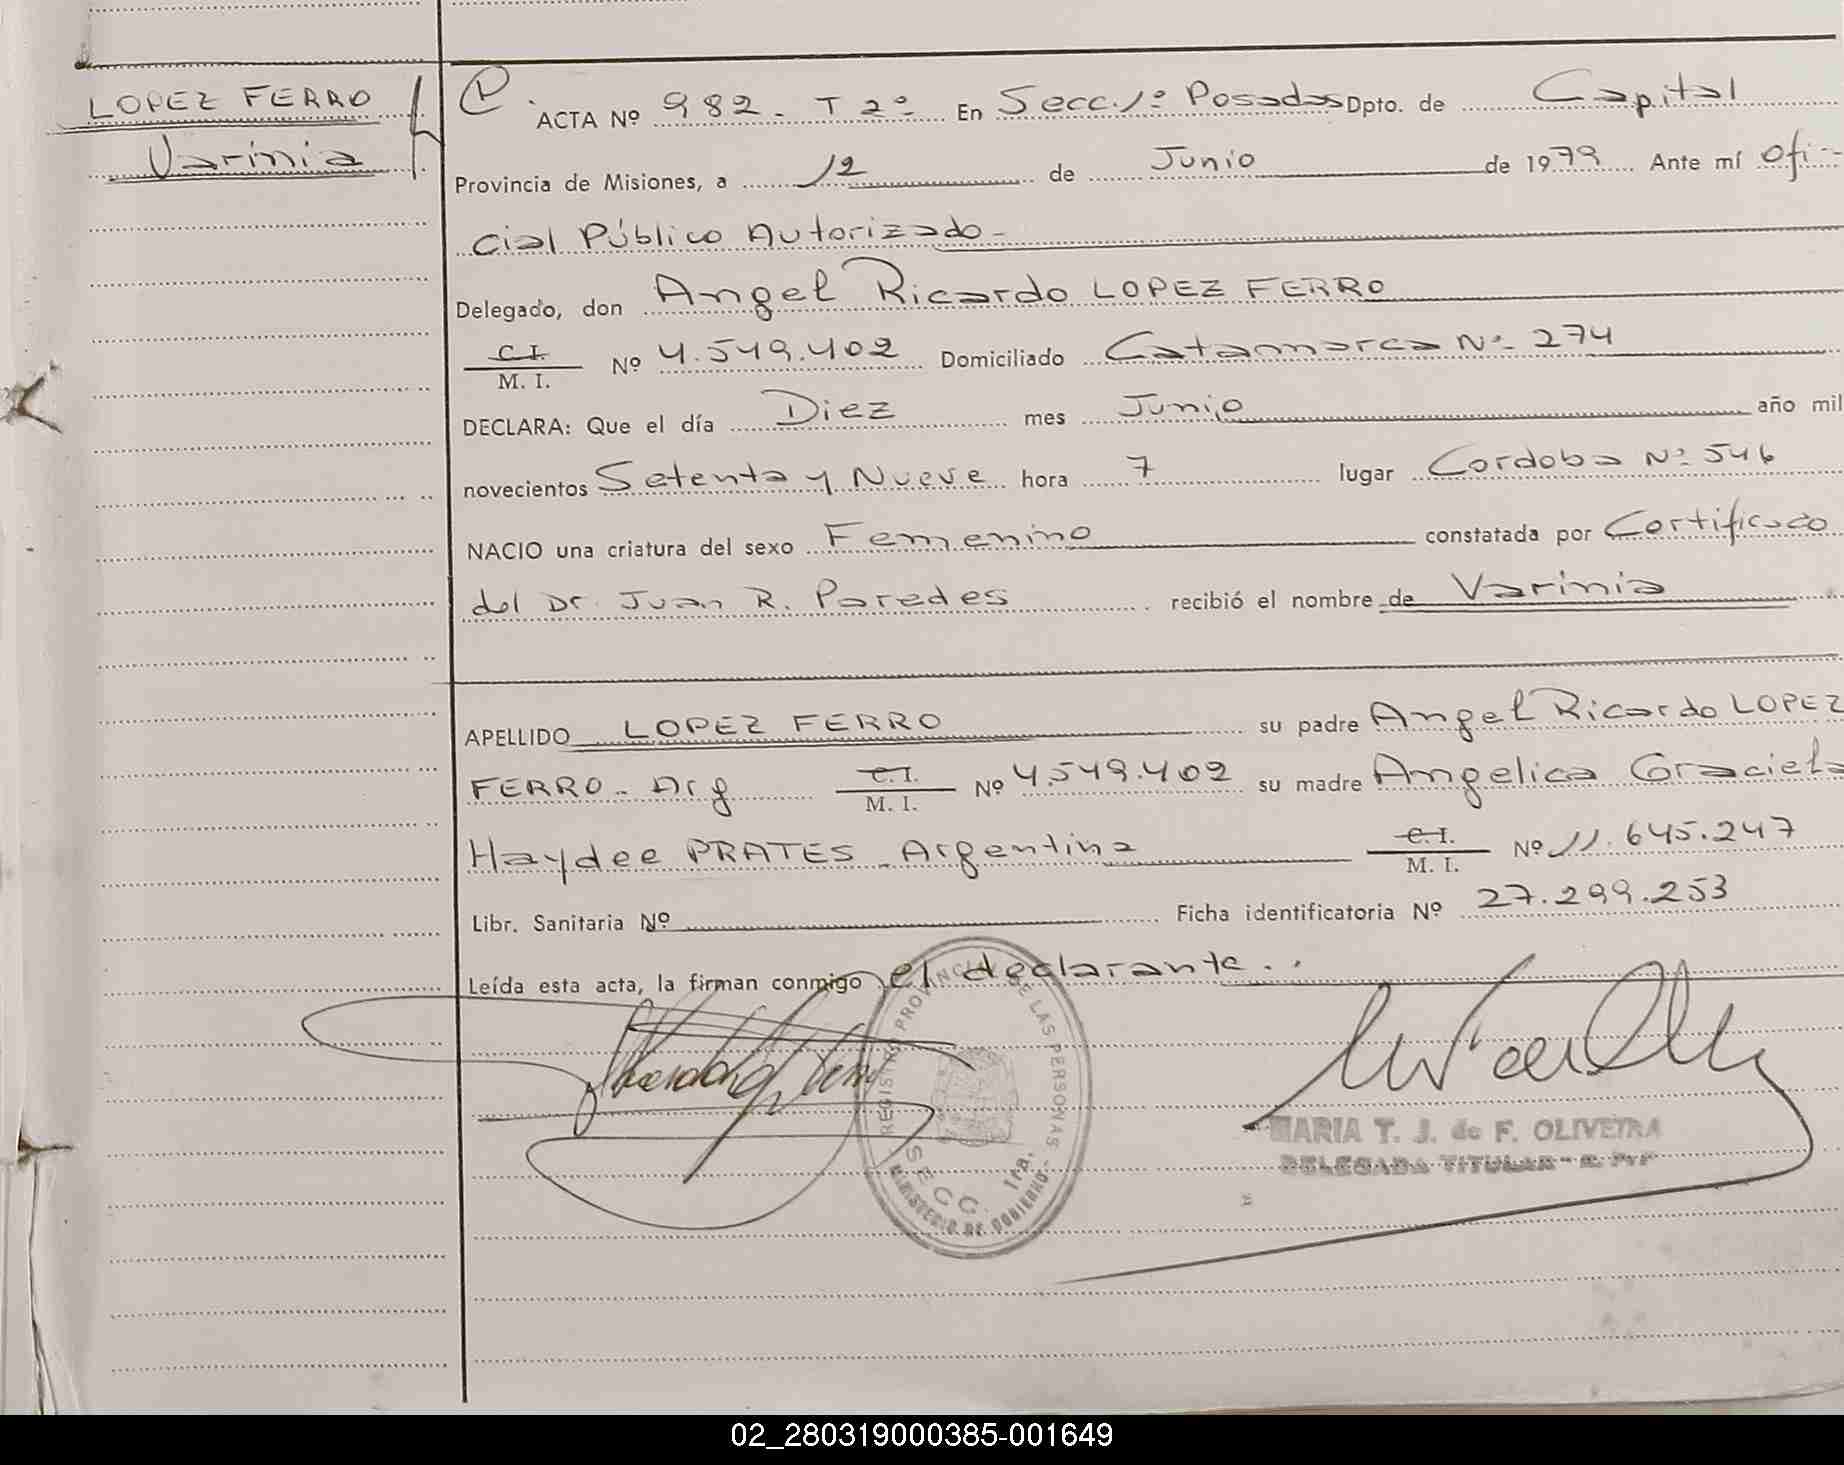 LOPEZ FERRO
Varinia
ACTA Nº 982. T 2º En Secc. 1º Posadas Dpto. de Capital
Provincia de Misiones, a 12 de Junio de 1979 Ante mí Ofi-
cial Público Autorizado-
Delegado, don Angel Ricardo LOPEZ FERRO
C.I.
M. I. Nº 4.549.402 Domiciliado Catamarca Nº 274
DECLARA: Que el día Diez mes Junio año mil
novecientos Setenta y Nueve hora 7 lugar Cordoba Nº 546
NACIO una criatura del sexo Femenino constatada por Certificado
del Dr. Juan R. Paredes recibió el nombre de Varinia
APELLIDO LOPEZ FERRO su padre Angel Ricardo LOPEZ
FERRO- Arg C.I. M. I. Nº 4.549.402 su madre Angelica Graciela
Haydee PRATES- Argentina C.I. M. I. Nº 11.645.247
Libr. Sanitaria Nº Ficha identificatoria Nº 27.299.253
Leída esta acta, la firman conmigo el declarante..
REGISTRO PROVINCIAL DE LAS PERSONAS
SECC. 1ra.
MINISTERIO DE GOBIERNO
MARIA T. J. de F. OLIVEIRA
DELEGADA TITULAR
02_280319000385-001649